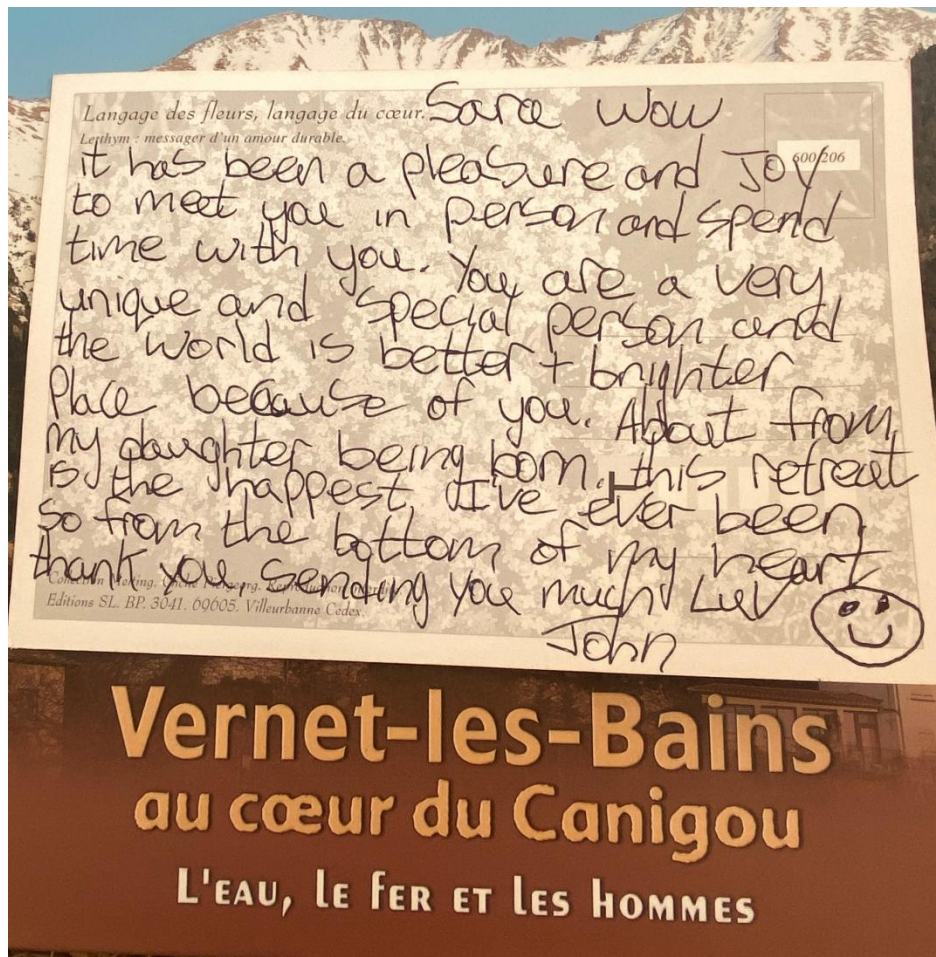 Langage des fleurs, langage du cœur.
Le thym : messager d'un amour durable.
600/206
Sara Wow
it has been a pleasure and Joy
to meet you in person and spend
time with you. You are a very
unique and special person and
the world is better + brighter
Place because of you. About from
my daughter being born, this retreat
is the happest I've ever been
so from the bottom of my heart
thank you sending you much Luv
John
Editions SL. BP. 3041. 69605. Villeurbanne Cedex.
Vernet-les-Bains
au cœur du Canigou
L'EAU, LE FER ET LES HOMMES